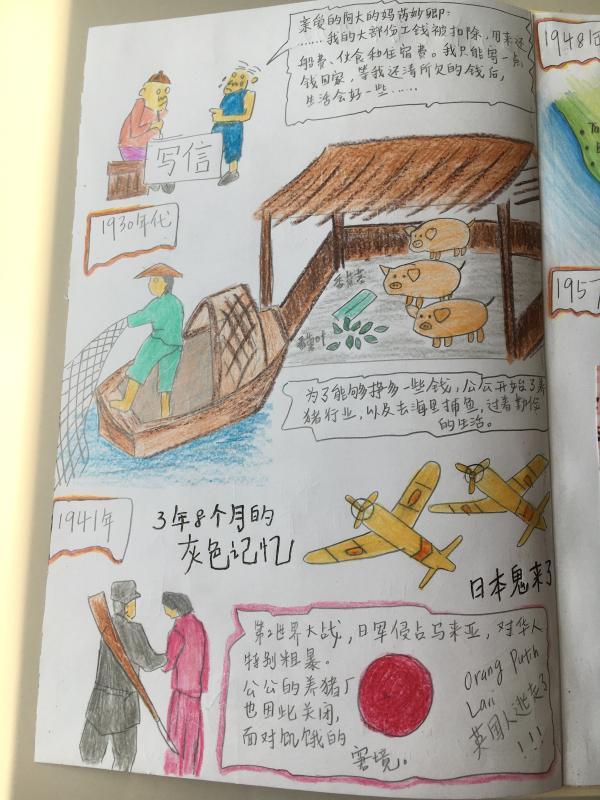 亲爱的阿大的妈芮妙卿:
……我的大部份工钱被扣除,用来还
船费、伙食和住宿费。我只能寄一点
钱回家,等我还清所欠的钱后,
生活会好一些……
写信
1930年代
香蕉叶
为了能够挣多一些钱,公公开始了养
猪行业,以及去海里捕鱼,过着勤俭
的生活。
1941年
3年8个月的
灰色记忆
日本鬼来了
第2世界大战,日军侵占马来亚,对华人
特别粗暴。
公公的养猪厂
也因此关闭,
面对饥饿的
窘境。
Orang Putih
Lari
英国人逃走了
!!!
1948年
1957